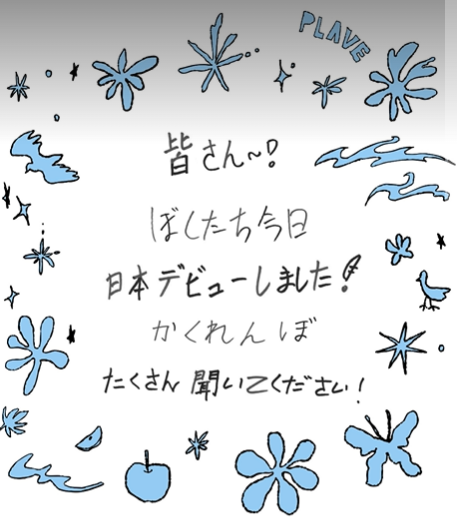 PLAVE
皆さん~?
ぼくたち今日
日本デビューしました!
かくれんぼ
たくさん聞いてください!